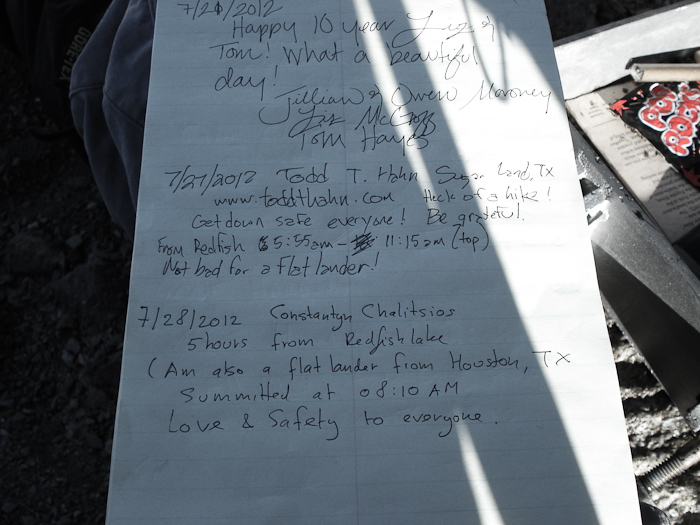 7/21/2012
Happy 10 year Liz &
Tom! What a beautiful
day!
Jillian & Owen Moroney
Liz
Tom Hayes
7/27/2012 Todd T. Hahn Sugar Land, TX
www.toddthahn.com Heck of a hike!
Get down safe everyone! Be grateful!
From Redfish 5:55am - 11:15am (top)
Not bad for a Flat lander!
7/28/2012 Constantyn Chalitsios
5 hours from Redfish lake
(Am also a flat lander from Houston, TX
Summitted at 08:10 AM
Love & Safety to everyone.
GORE-TEX
POP
ROCKS